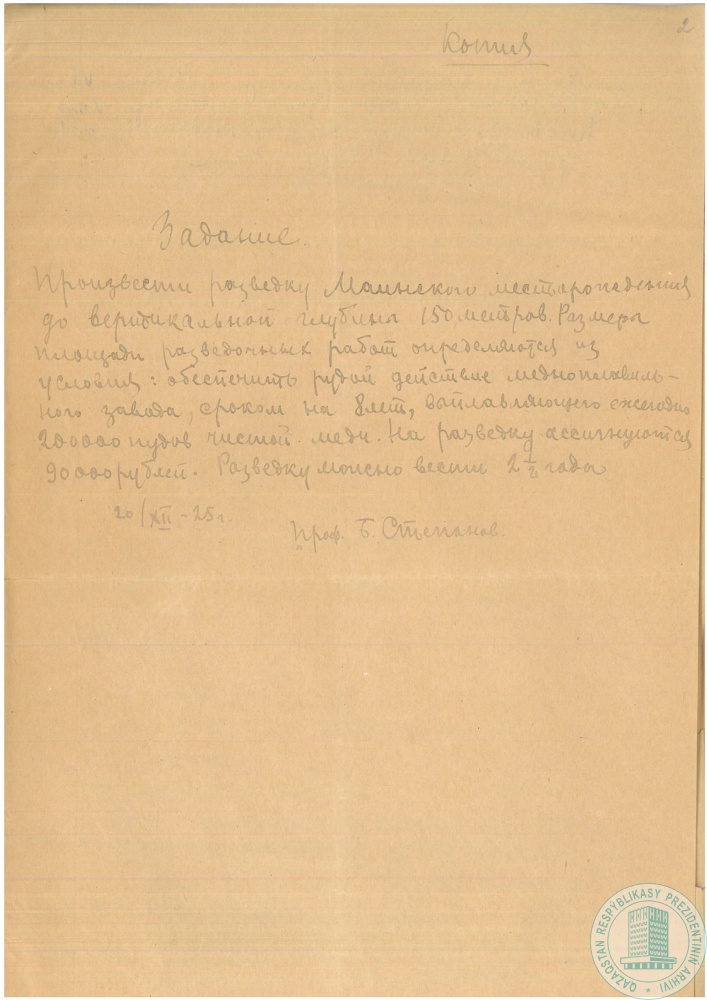 2
Копия
Задание.
Произвести разведку Маинского месторождения
до вертикальной глубины 150 метров. Размеры
площади разведочных работ определяются из
условия: обеспечить рудой действие медноплавиль-
ного завода, сроком на 8 лет, выплавляющего ежегодно
200000 пудов чистой меди. На разведку ассигнуются
90000 рублей. Разведку можно вести 2 1/2 года
20/XII-25г.
Проф. Б. Степанов.
QAZAQSTAN RESPÝBLIKASY PREZIDENTINIŃ ARHIVI